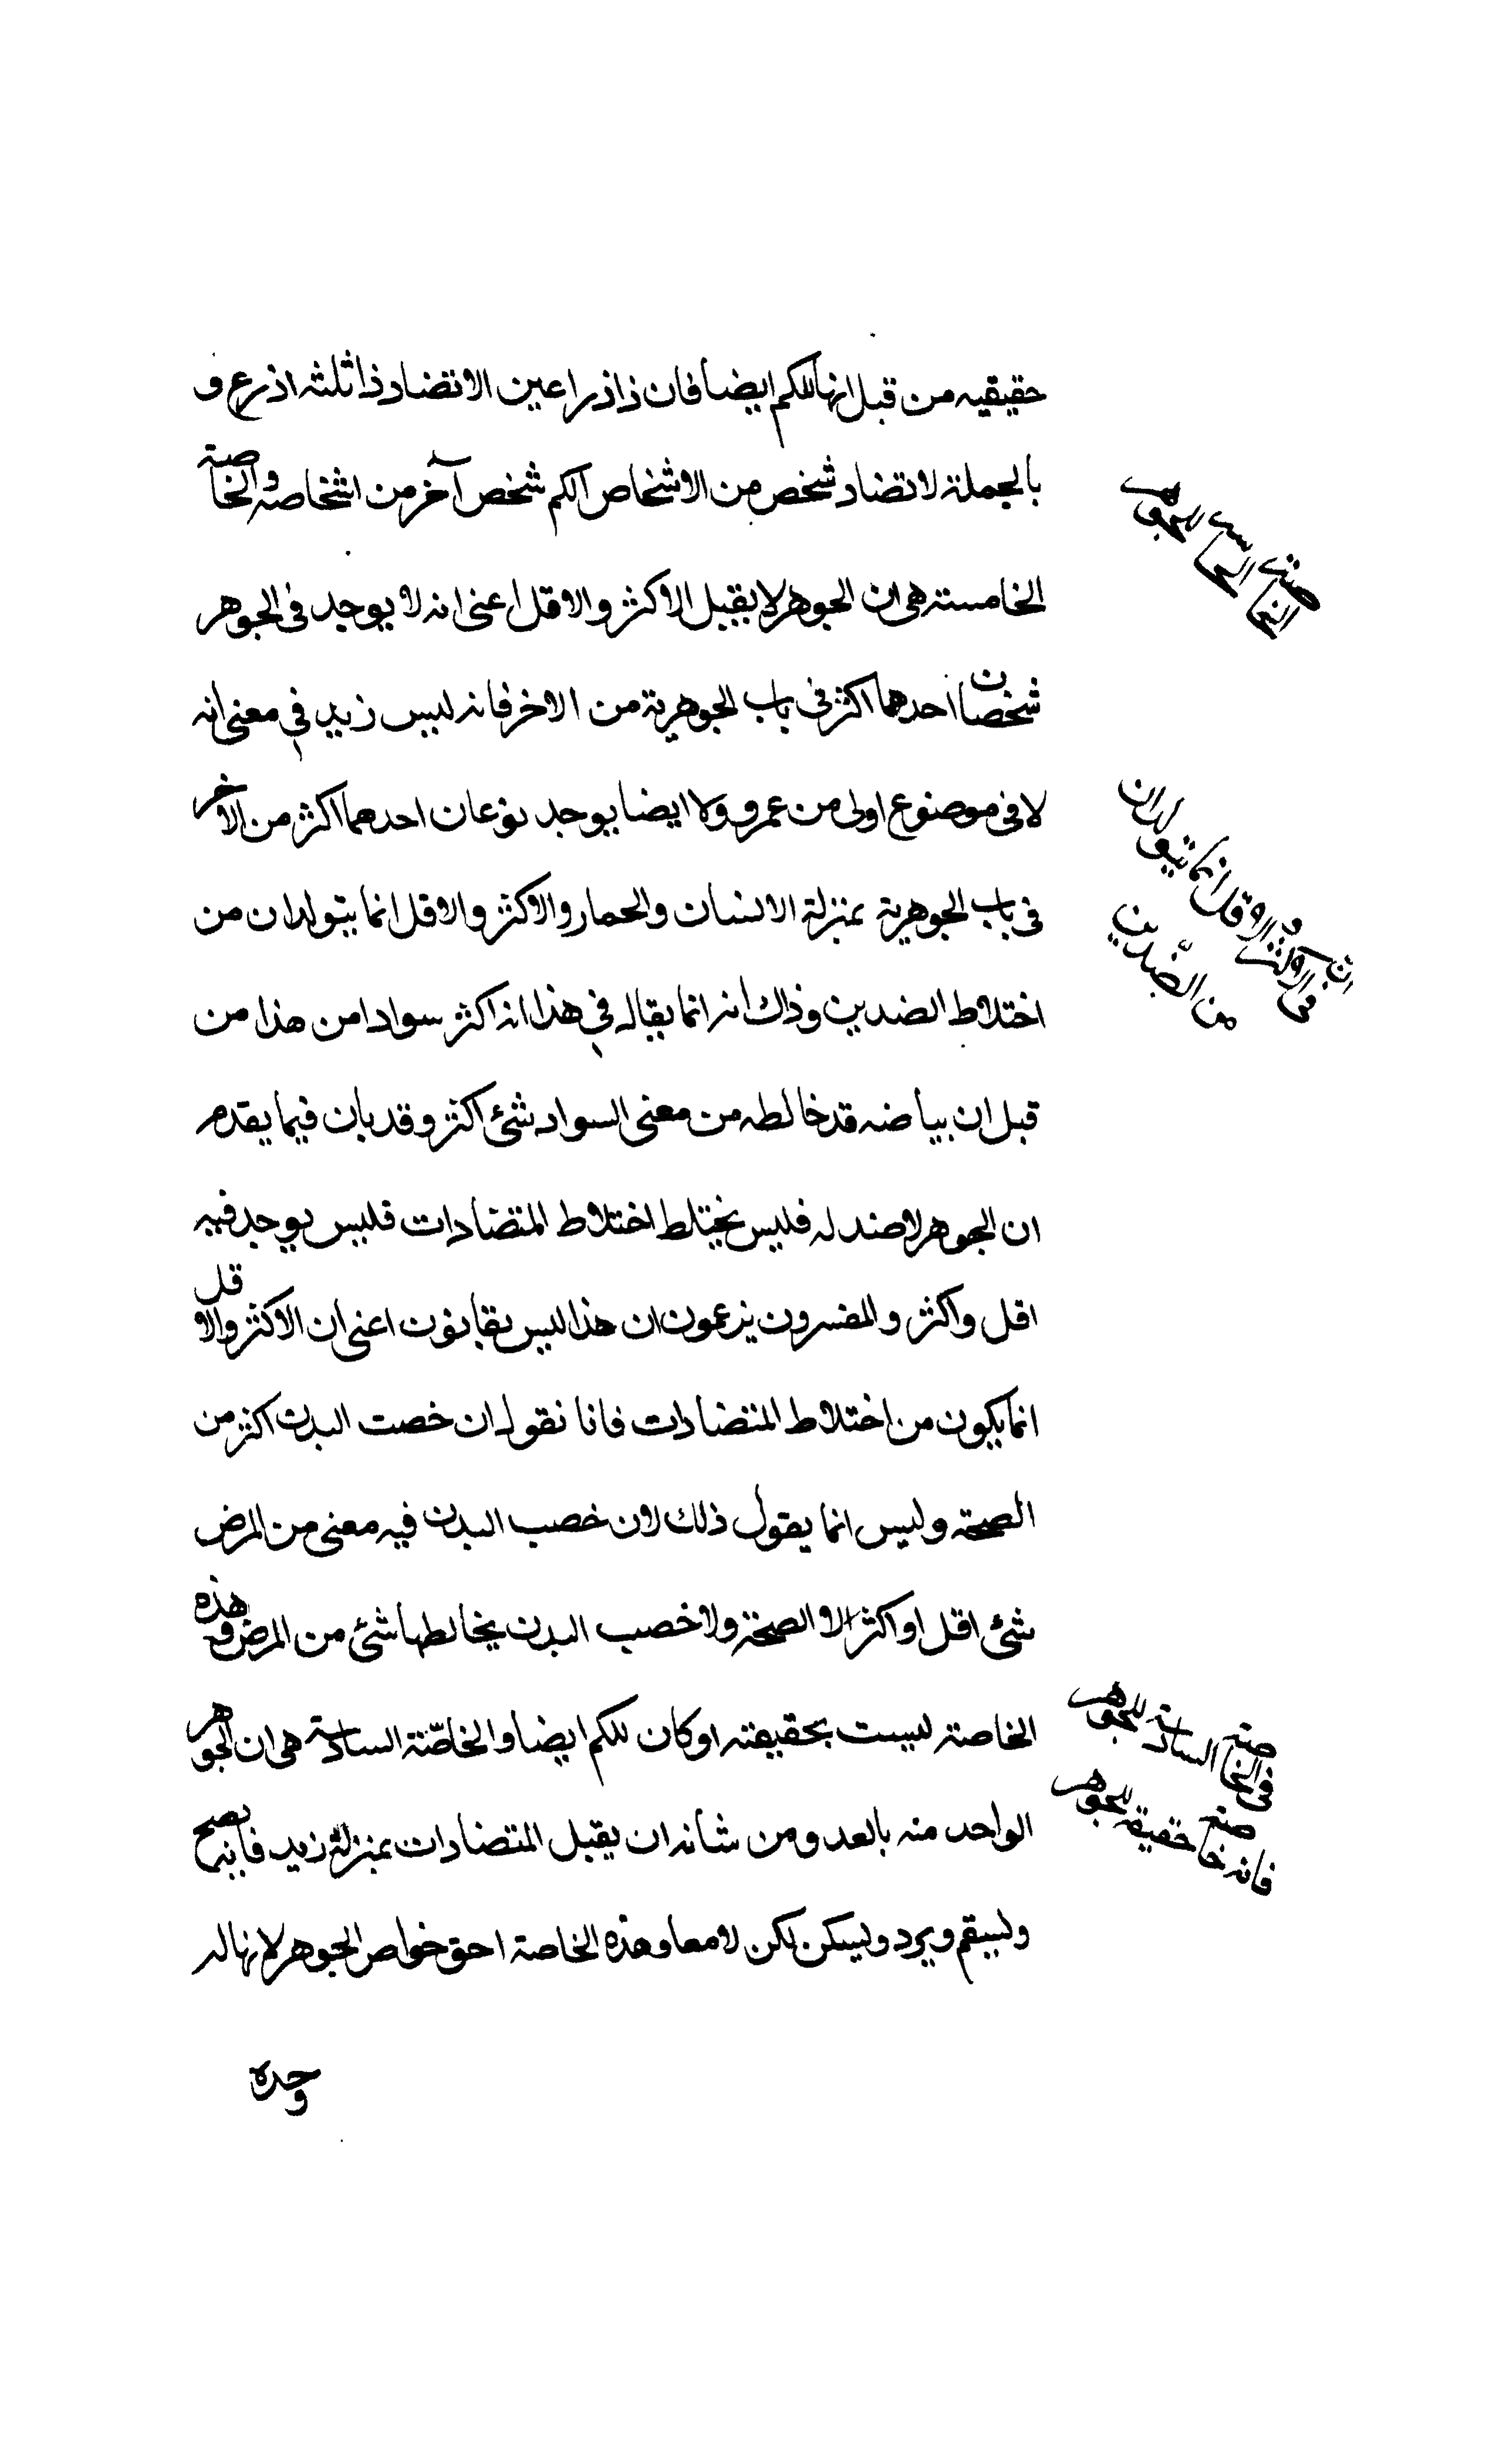 حقيقيه من قبل انها للكم ايضا فان ذا ذراعين الا تضاد ذا ثلثه اذرع و
بالجملة لا تضاد شخص من الاشخاص الكم شخص آخر من اشخاصه والخاصة
الخامسته هى ان الجوهر لا يقبل الاكثر والاقل اعنى انه لا يوجد فى الجوهر
شخصان احدهما اكثر فى باب الجوهرية من الاخر فانه ليس زيد فى معنى انه
لا فى موضوع اولى من عمرو ولا ايضا يوجد نوعان احدهما اكثر من الاخر
فى باب الجوهرية بمنزلة الانسان والحمار والاكثر والاقل انما يتولدان من
اختلاط الضدين وذاك انه انما يقال فى هذا انه اكثر سوادا من هذا من
قبل ان بياضه قد خالطه من معنى السواد شئ اكثر وقد بان فيما يقدم
ان الجوهر لا ضد له فليس يختلط اختلاط المتضادات فليس يوجد فيه
اقل واكثر والمفسرون يزعمون ان هذا ليس بقانون اعنى ان الاكثر والاقل
انما يكون من اختلاط المتضادات فانا نقول ان خصت البدن اكثر من
الصحة وليس انما يقول ذلك لان خصب البدن فيه معنى من المرض
شئ اقل او اكثر الا الصحة ولا خصب البدن يخالطها شئ من المرض وهذه
الخاصة ليست بحقيقته او كان للكم ايضا والخاصّة السادسة هى ان الجوهر
الواحد منه بالعدد ومن شانه ان يقبل المتضادات بمنزلة زيد فانه يصح
ويسقم ويبرد ويسكن لكن لا معا وهذه الخاصة احق خواص الجوهر لانها له
وحده
الخاصة الخامسة للجوهر
فى ان الاكثر والاقل انما يتولدان
من الضّدين
فى الخاصة السادسة للجوهر
فانه خاصة حقيقة للجوهر